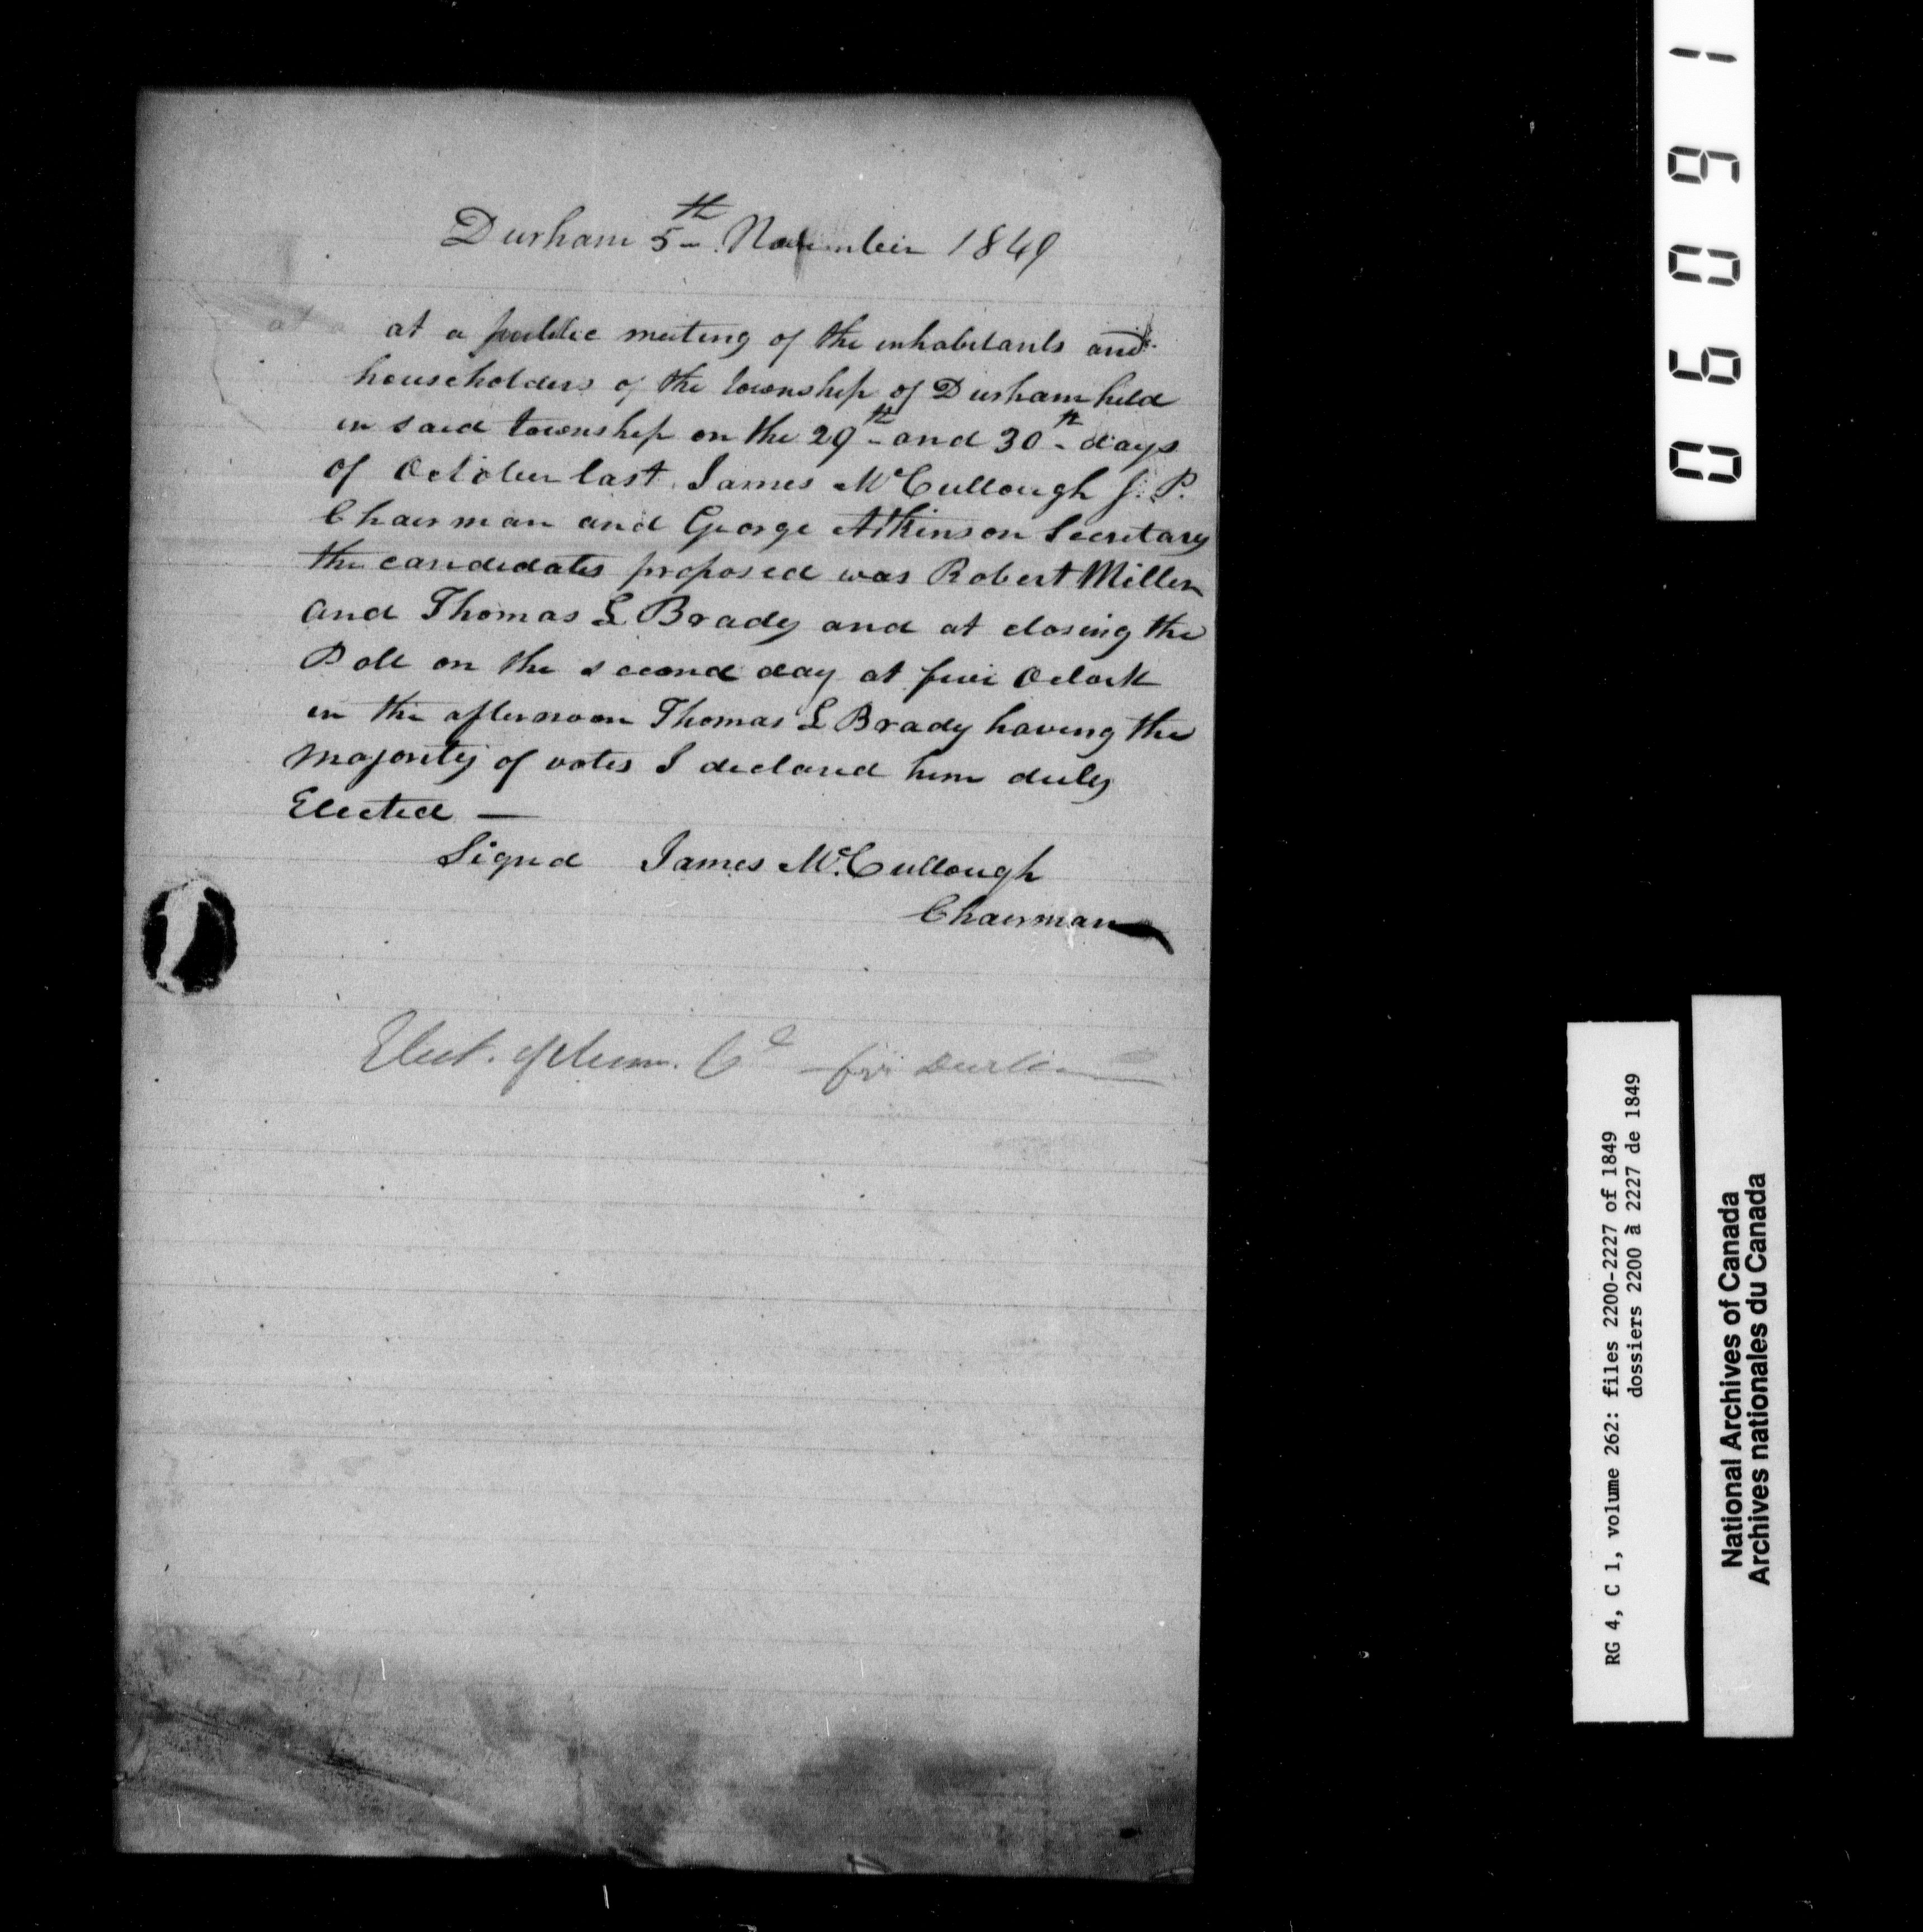 Durham 5th November 1849
at a public meeting of the inhabitants and
householders of the township of Durham held
in said township on the 29th and 30th days
of October last James McCullough J. P.
Chairman and George Atkinson Secretary
the candidates proposed was Robert Miller
and Thomas L Brady and at closing the
Poll on the second day at five Oclock
in the afternoon Thomas L Brady having the
majority of votes I declared him duly
Elected —
Signd James McCullough
Chairman
Elect. of Mun. Cl for Durham
06091
RG 4, C 1, volume 262: files 2200-2227 of 1849
dossiers 2200 à 2227 de 1849
National Archives of Canada
Archives nationales du Canada